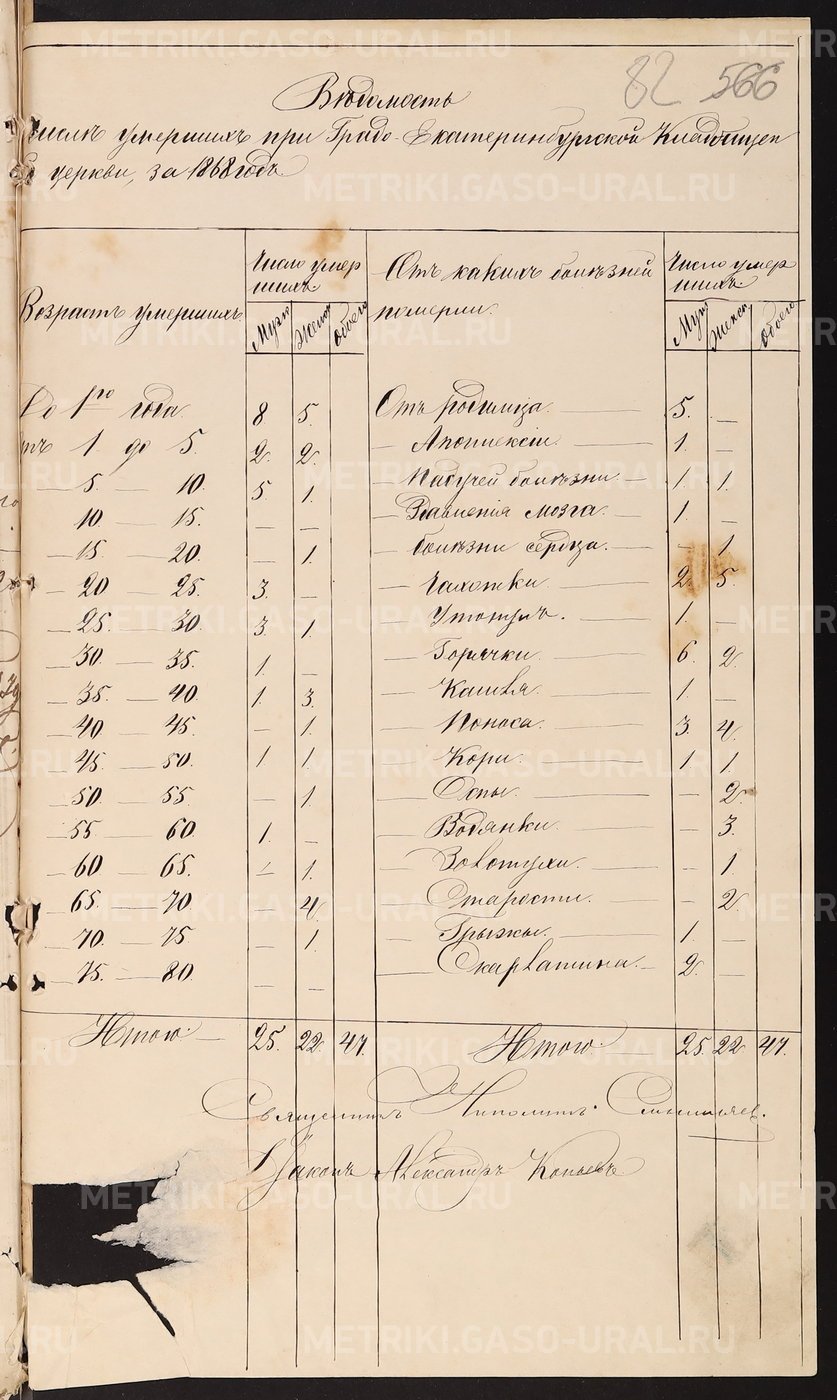 82 566
Вѣдомость
умершихъ при Градо-Екатеринбургской Кладбищен
церкви, за 1868 годъ
Возрастъ умершихъ.
Число умер
шихъ
Муж
Женск
обоего
Отъ какихъ болѣзней
померли.
Число умер
шихъ.
Муж
Женск.
обоего
До 1го года. 8 5. Отъ родимца. — 5. —
тъ 1 до 5. 2. 2. — Апоплексіи — 1. —
— 5. — 10. 5. 1. — Падучей болѣзни — 1. 1.
10. 15. — — — Давленія мозга. — 1. —
— 15. — 20. — 1. — болѣзни сердца. — — 1
— 20 — 25. 3. — — Чахотки — 2. 5.
— 25. — 30. 3. 1. — Утонулъ. — 1. —
— 30 — 35. 1. — — Горячки — 6. 2.
— 35. — 40 1. 3. — Кашля. — 1. —
— 40 — 45. — 1. — Поноса. — 3. 4.
— 45. — 50. 1 1. — Кори. — 1 1.
— 50. — 55 — 1. — Оспы. — — 2.
— 55 — 60. 1. — — Водянки. — — 3.
— 60 — 65. — 1. — Золотухи. — — 1
— 65. — 70 — 4. — Старости. — — 2.
— 70. — 75 — 1. — Грыжи. — 1. —
— 75. — 80. — — — Скарлатина. — 2. —
Итого. — 25. 22. 47. Итого. — 25. 22 47.
Священникъ Ипполитъ
Діаконъ Александръ Копьевъ